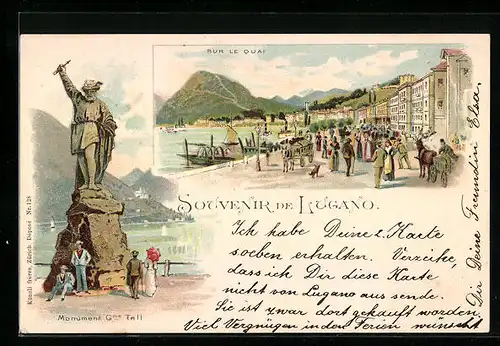 SUR LE QUAI
SOUVENIR DE LUGANO.
Monument Gme Tell
Künzli frères, Zürich. Deposé Nr. 128
Ich habe Deine l. Karte
soeben erhalten. Verzeihe,
dass ich Dir diese Karte
nicht von Lugano aus sende.
Sie ist zwar dort gekauft worden.
Viel Vergnügen in den Ferien wünscht
Dir Deine Freundin Elsa.